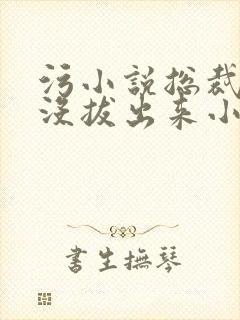 污小说总裁
没拔出来小
書生撫琴